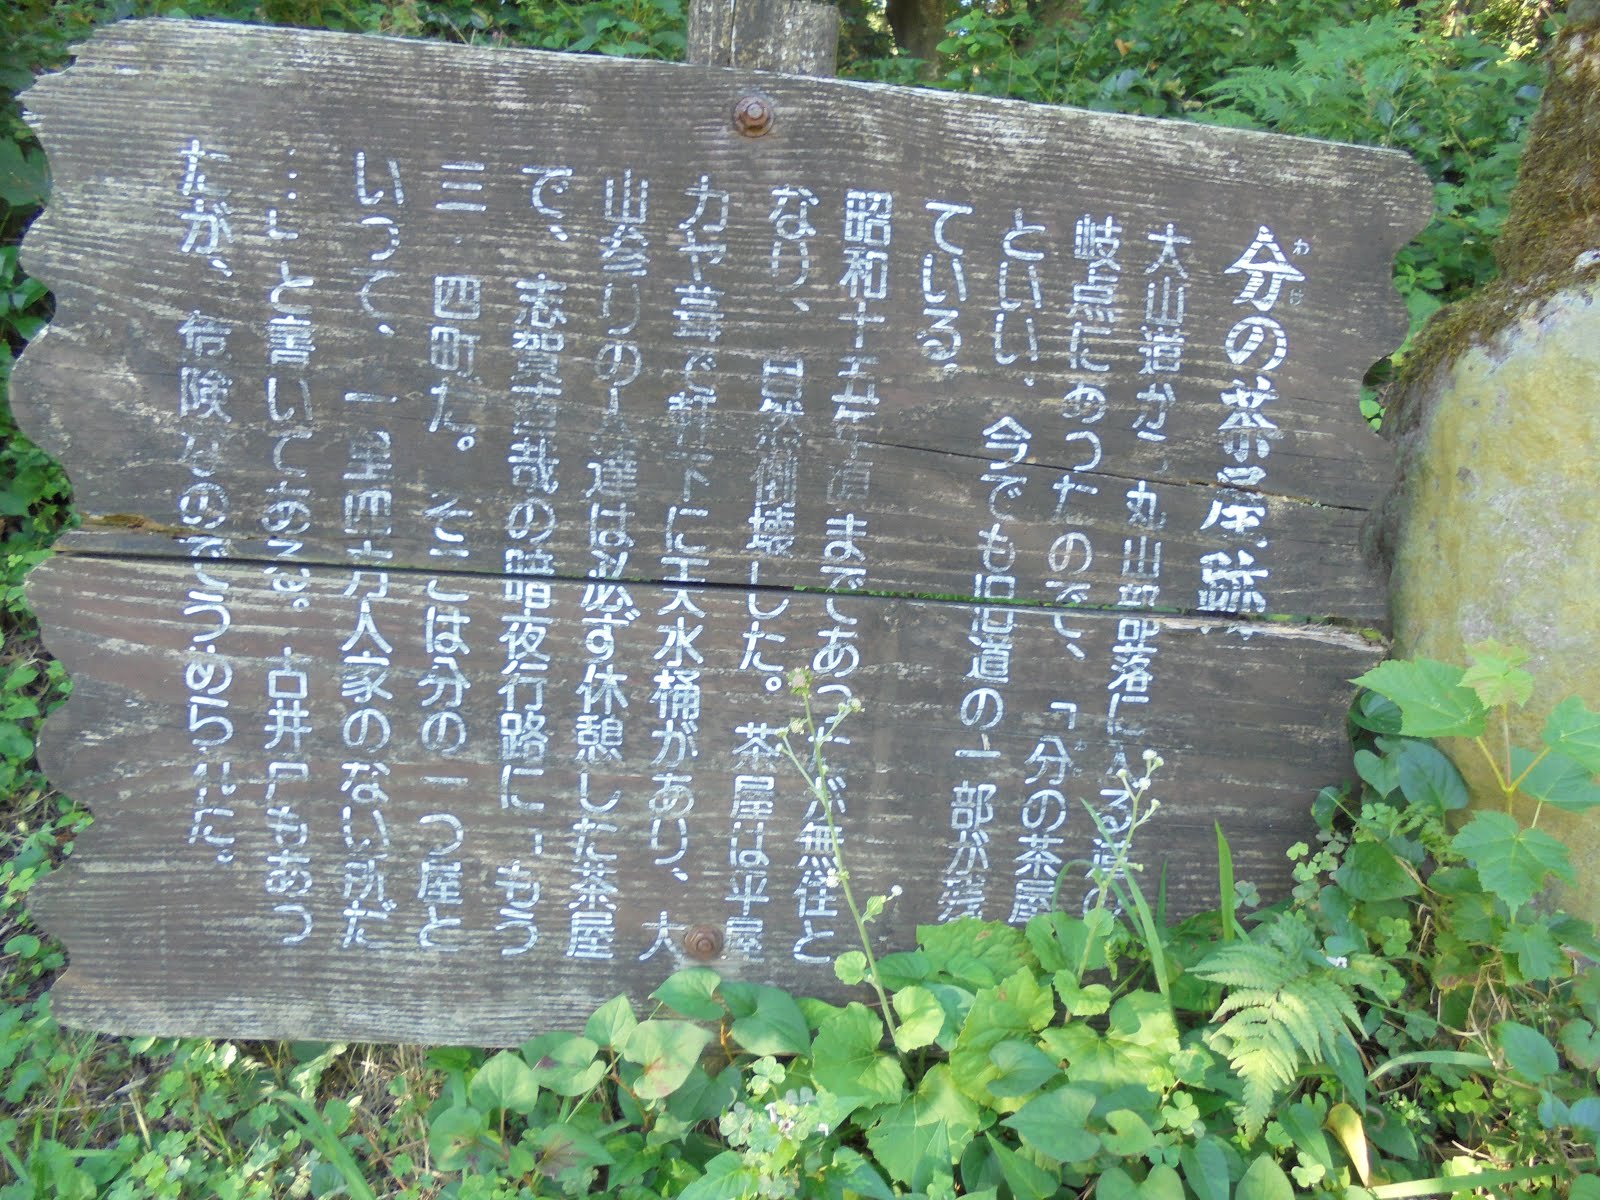 分の茶屋跡
わけ
大山道から丸山部落に入る道の
岐点にあったので、「分の茶屋
といい、今でも旧道の一部が残
ている。
昭和十五年頃まであったが無住と
なり、自然倒壊した。茶屋は平屋
カヤ葺で軒下に天水桶があり、大
山参りの人達は必ず休憩した茶屋
で、志賀直哉の暗夜行路に「もう
三、四町だ。そこは分の一つ屋と
いって、一里四方人家のない所だ
…」と書いてある。古井戸もあっ
たが、危険なのでうめられた。